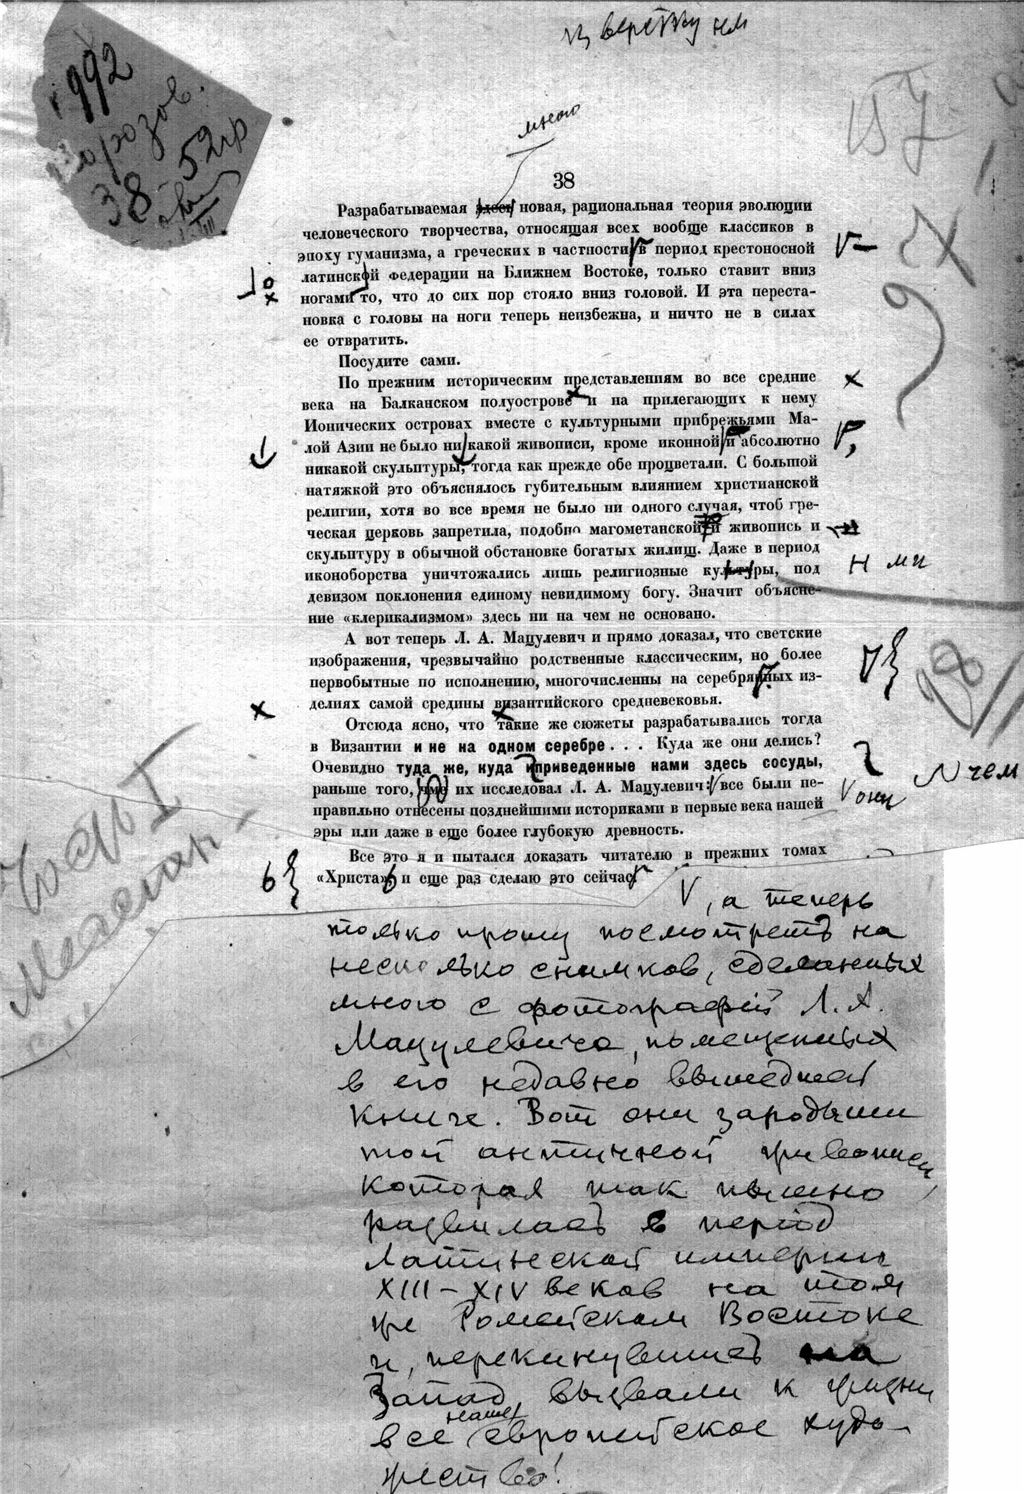 в верстку нм
1992
Морозов.
38 52гр
мною
157
97
38
Разрабатываемая здесь новая, рациональная теория эволюции
человеческого творчества, относящая всех вообще классиков в
эпоху гуманизма, а греческих в частности в период крестоносной
латинской федерации на Ближнем Востоке, только ставит вниз
ногами то, что до сих пор стояло вниз головой. И эта переста-
новка с головы на ноги теперь неизбежна, и ничто не в силах
ее отвратить.
Посудите сами.
По прежним историческим представлениям во все средние
века на Балканском полуострове и на прилегающих к нему
Ионических островах вместе с культурными прибрежьями Ма-
лой Азии не было никакой живописи, кроме иконной и абсолютно
никакой скульптуры, тогда как прежде обе процветали. С большой
натяжкой это объяснялось губительным влиянием христианской
религии, хотя во все время не было ни одного случая, чтоб гре-
ческая церковь запретила, подобно магометанской и живопись и
скульптуру в обычной обстановке богатых жилищ. Даже в период
иконоборства уничтожались лишь религиозные культуры, под
девизом поклонения единому невидимому богу. Значит объясне-
ние «клерикализмом» здесь ни на чем не основано.
н ми
А вот теперь Л. А. Мацулевич и прямо доказал, что светские
изображения, чрезвычайно родственные классическим, но более
первобытные по исполнению, многочисленны на серебрянных из-
делиях самой средины византийского средневековья.
98
Отсюда ясно, что такие же сюжеты разрабатывались тогда
в Византии и не на одном серебре . . . Куда же они делись?
Очевидно туда же, куда и приведенные нами здесь сосуды,
раньше того, что их исследовал Л. А. Мацулевич: все были не-
правильно отнесены позднейшими историками в первые века нашей
эры или даже в еще более глубокую древность.
чем
они
Все это я и пытался доказать читателю в прежних томах
«Христа» и еще раз сделаю это сейчас
Часть I
, а теперь
только прошу посмотреть на
несколько снимков, сделанных
мною с фотографий Л. А.
Мацулевича, помещенных
в его недавно вышедшей
книге. Вот они зародыши
той античной живописи,
которая так пышно
развилась в период
Латинской империи
XIII–XIV веков на том
же Ромейском Востоке
и, перекинувшись на
Запад, вызвали к жизни
все наше европейское худо-
жество!